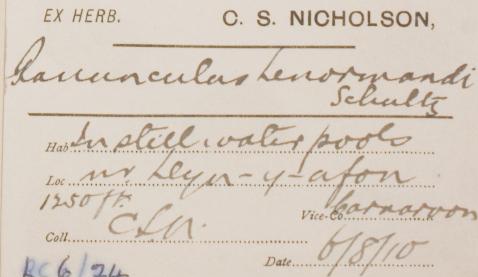 EX HERB. C. S. NICHOLSON,
Ranunculus Lenormandi
Schultz
Hab. In still water pools
Loc. nr. Llyn-y-afon
1250 ft. Vice-Co. Carnarvon
Coll. C.S.N.
Date 6/8/10